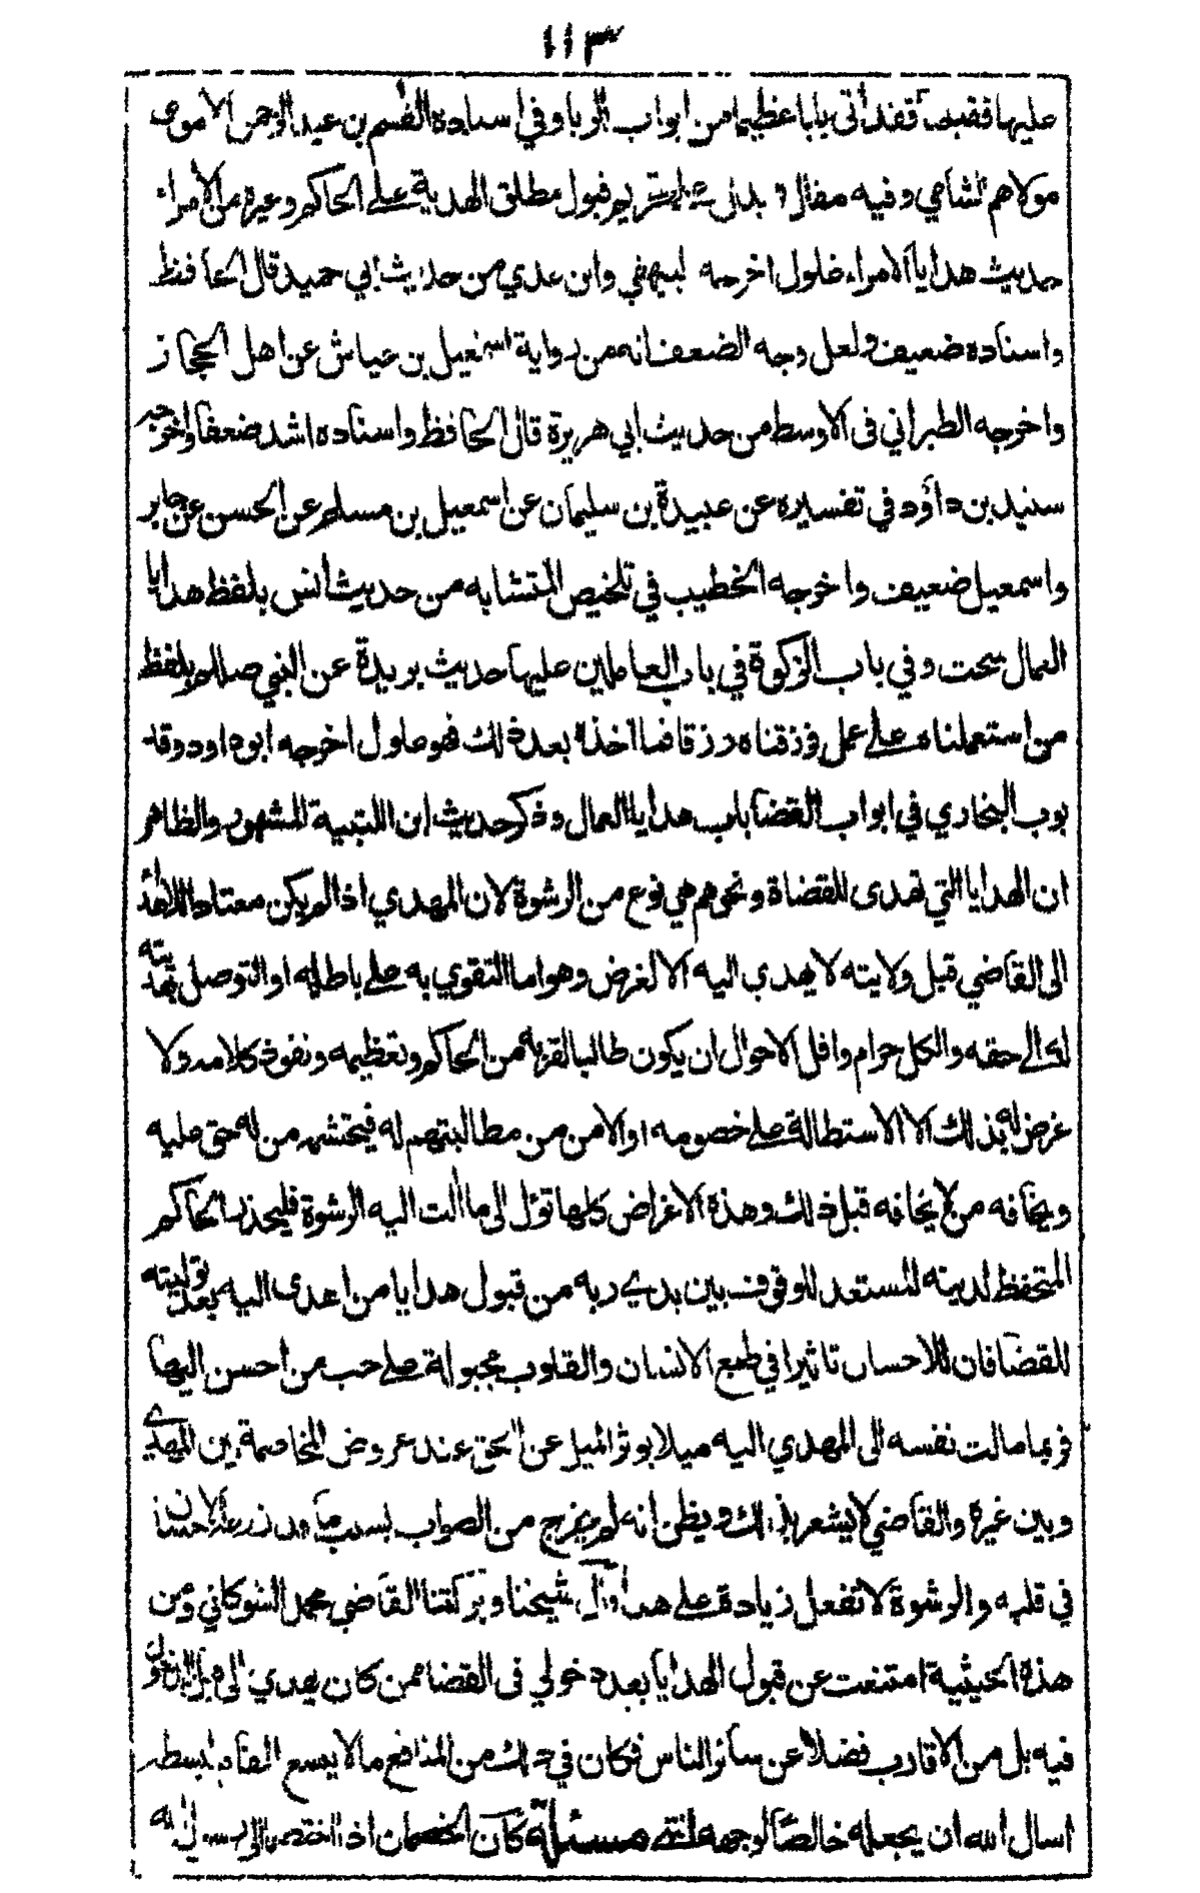 ١١٣
عليها فقبلها فقد أتى بابا عظيما من ابواب الربا وفي اسناده القسم بن عبد الرحمن الاموى
مولاهم الشامي وفيه مقال ويدل على تحريم قبول مطلق الهدية على الحاكم وغيره من الأمراء
حديث هدايا الامراء غلول اخرجه البيهقي وابن عدي من حديث ابي حميد قال الحافظ
واسناده ضعيف ولعل وجه الضعف انه من رواية اسمعيل بن عياش عن اهل الحجاز
واخرجه الطبراني فى الاوسط من حديث ابي هريرة قال الحافظ واسناده اشد ضعفا واخرجه
سنيد بن داؤد في تفسيره عن عبيدة بن سليمان عن اسمعيل بن مسلم عن الحسن عن جابر
واسمعيل ضعيف واخرجه الخطيب في تلخيص المتشابه من حديث انس بلفظ هدايا
العمال سحت وفي باب الزكوة في باب العاملين عليها حديث بريدة عن النبي صللم بلفظ
من استعملناه على عمل فرزقناه رزقا فما اخذه بعد ذلك فهو غلول اخرجه ابو داود وقد
بوب البخاري في ابواب القضا باب هدايا العمال وذكر حديث ابن اللتبية المشهور والظاهر
ان الهدايا التي تهدى للقضاة ونحوهم هي نوع من الرشوة لان المهدي اذا لم يكن معتادا للاهداء
الى القاضي قبل ولايته لا يهدي اليه الا لغرض وهو اما التقوي به على باطله او التوصل بهديته
له الى حقه والكل حرام واقل الاحوال ان يكون طالبا لقربه من الحاكم وتعظيمه ونفوذ كلامه ولا
غرض له بذلك الا الاستطالة على خصومه او الامن من مطالبتهم له فيحتشمه من له حق عليه
ويخافه من لا يخافه قبل ذلك وهذه الاغراض كلها تؤل الى ما آلت اليه الرشوة فليحذر الحاكم
المتحفظ لدينه المستعد للوقوف بين يدي ربه من قبول هدايا من اهدى اليه بعد توليته
للقضا فان للاحسان تاثيرا في طبع الانسان والقلوب مجبولة على حب من احسن اليها
فربما مالت نفسه الى المهدي اليه ميلا يوثر الميل عن الحق عند عروض المخاصمة بين المهدي
وبين غيره والقاضي لا يشعر بذلك ويظن انه لم يخرج من الصواب بسبب ما قد زرعه الاحسان
في قلبه والرشوة لا تفعل زيادة على هذا قال شيخنا وبركتنا القاضي محمد الشوكاني ومن
هذه الحيثية امتنعت عن قبول الهدايا بعد دخولي فى القضا ممن كان يهدي الى قبل الدخول
فيه بل من الاقارب فضلا عن سائر الناس فكان في ذلك من المنافع ما لا يسع المقام لبسطه
اسال الله ان يجعله خالصا لوجهه انتهى مسئلة كان الخصمان اذا اختصما الى رسول الله